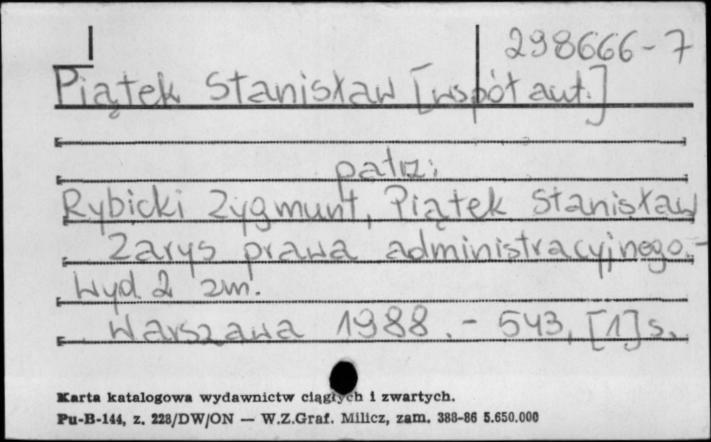 298666-7
Piątek Stanisław [współaut.]
patrz:
Rybicki Zygmunt, Piątek Stanisław
Zarys prawa administracyjnego.-
Wyd. 2 zm.
Warszawa 1988.- 543, [1] s.
Karta katalogowa wydawnictw ciągłych i zwartych.
Pu-B-144, z. 228/DW/ON — W.Z.Graf. Milicz, zam. 388-86 5.650.000